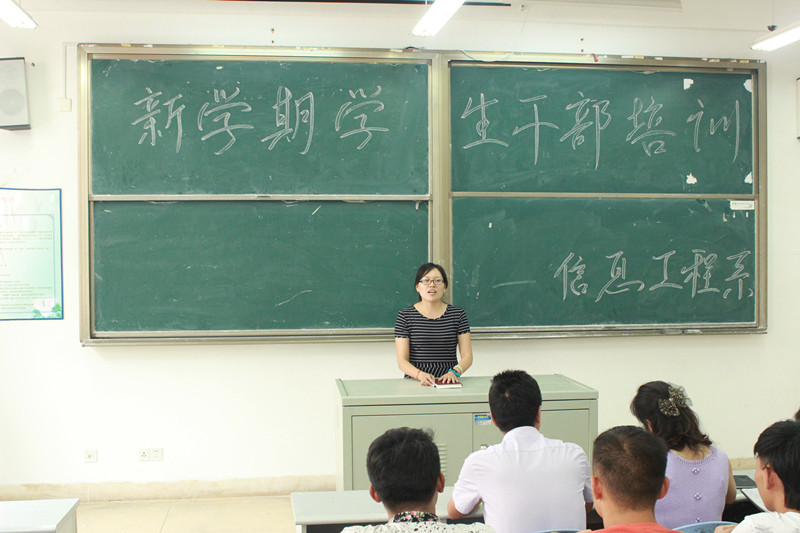 新学期学生干部培训
— 信息工程系